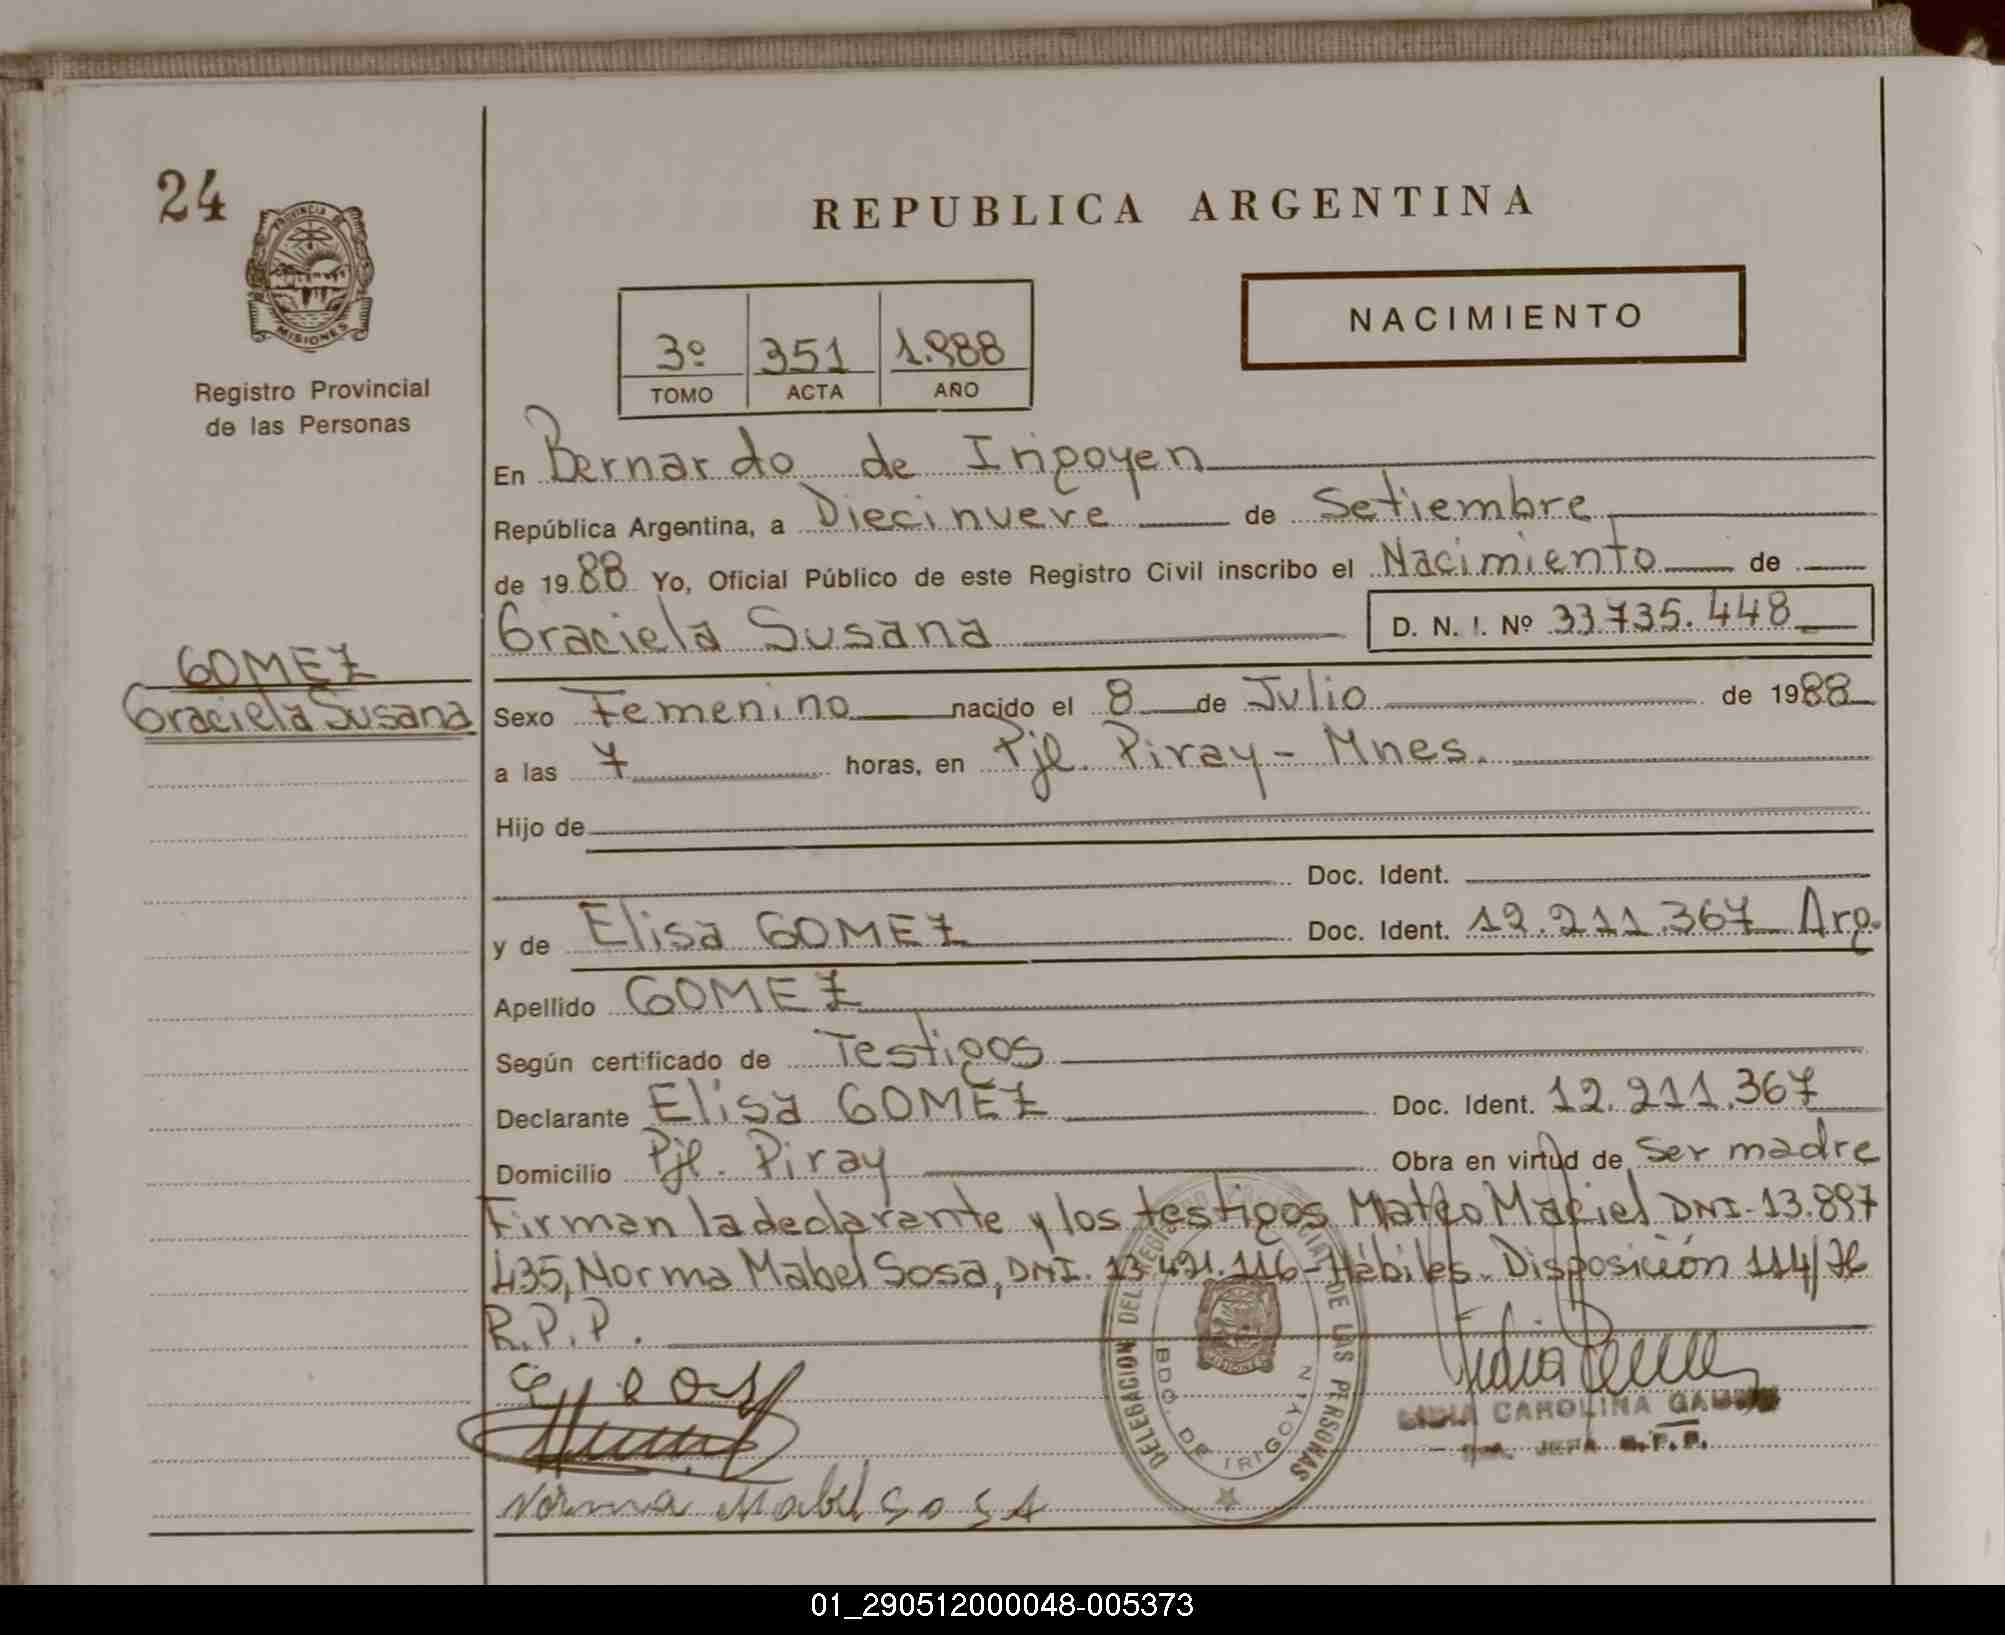 24
PROVINCIA DE
MISIONES
Registro Provincial
de las Personas
REPUBLICA ARGENTINA
3º 351 1.988
TOMO ACTA AÑO
NACIMIENTO
En Bernardo de Irigoyen
República Argentina, a Diecinueve de Setiembre
de 1988 Yo, Oficial Público de este Registro Civil inscribo el Nacimiento de
Graciela Susana D. N. I. Nº 33735.448
GOMEZ
Graciela Susana
Sexo Femenino nacido el 8 de Julio de 1988
a las 7 horas, en Pje. Piray - Mnes.
Hijo de
Doc. Ident.
y de Elisa GOMEZ Doc. Ident. 12.211.367 Arg.
Apellido GOMEZ
Según certificado de Testigos
Declarante Elisa GOMEZ Doc. Ident. 12.211.367
Domicilio Pje. Piray Obra en virtud de ser madre
Firman la declarante y los testigos Mateo Maciel DNI. 13.897
435, Norma Mabel Sosa, DNI. 13.421.116 - Hábiles. Disposición 114/
R.P.P.
DELEGACION DEL REGISTRO PROVINCIAL DE LAS PERSONAS
BDO. DE IRIGOYEN
LIDIA CAROLINA
JEFA R.P.P.
Norma Mabel Sosa
01_290512000048-005373